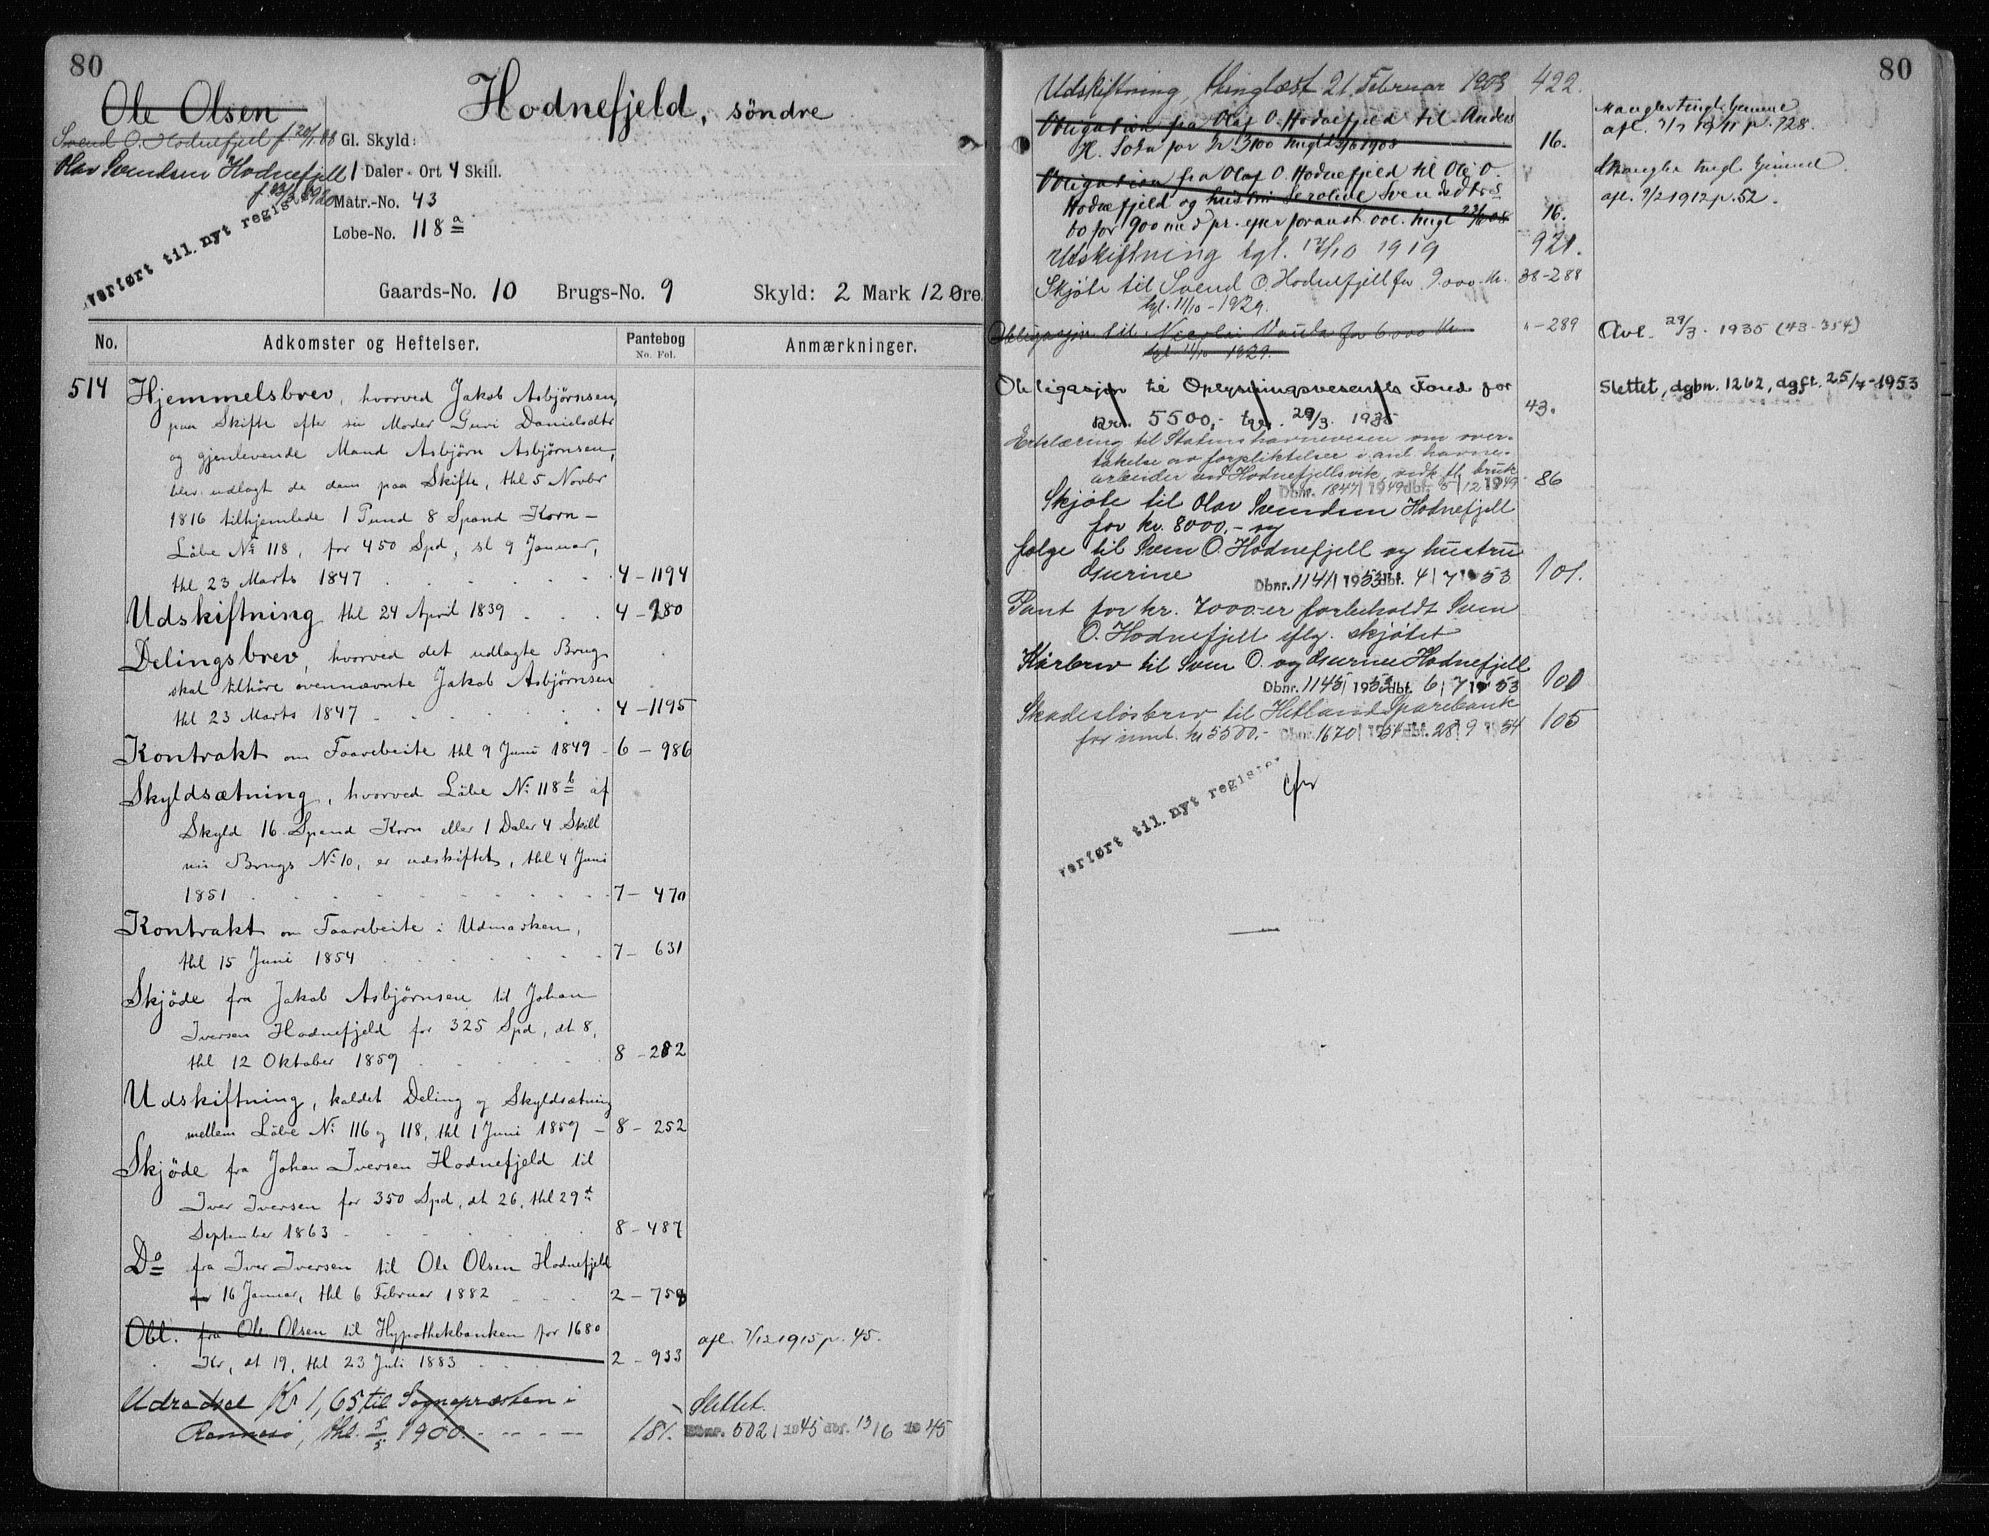 80
Ole Olsen
Hodnefjeld, söndre
Svend O. Hodnefjell f. 20/1.88
Olav Svendsen Hodnefjell
Gl. Skyld:
1 Daler - Ort 4 Skill.
verført til nyt register
Matr.-No. 43
Løbe-No. 118 a
Gaards-No. 10 Brugs-No. 9 Skyld: 2 Mark 12 Øre
No. Adkomster og Heftelser. Pantebog No. Fol. Anmærkninger.
514 Hjemmelsbrev, hvorved Jakob Asbjørnsen,
paa Skifte efter sin Moder Guri Danielsdtr
og gjenlevende Mand Asbjørn Asbjørnsen,
blev udlagt de dem paa Skifte, thl 5 Novbr
1816 tilhjemlede 1 Pund 8 Spand Korn –
Löbe No 118, for 450 Spd, sl 9 Januar,
thl 23 Marts 1847 4 – 1194
Udskiftning thl 24 April 1839 4 – 280
Delingsbrev, hvorved det udlagte Brug
skal tilhöre ovennævnte Jakob Asbjörnsen
thl 23 Marts 1847 4 – 1195
Kontrakt om Faarebeite thl 9 Juni 1849 – 6 – 986
Skyldsætning, hvorved Löbe No 118 b af
Skyld 16 Spand Korn eller 1 Daler 4 Skill
nu Brugs No 10, er udskiftet, thl 4 Juni
1851 7 – 470
Kontrakt om Faarebeite i Udmarken,
thl 15 Juni 1854 7 – 631
Skjöde fra Jakob Asbjørnsen til Johan
Iversen Hodnefjeld for 325 Spd, dt 8,
thl 12 Oktober 1859 8 – 282
Udskiftning, kaldet Deling og Skyldsætning
mellem Löbe No 116 og 118, thl 1 Juni 1859 – 8 – 252
Skjöde fra Johan Iversen Hodnefjeld til
Iver Iversen for 350 Spd, dt 26, thl 29 d
September 1863 8 – 487
Do fra Iver Iversen til Ole Olsen Hodnefjeld
for 16 Januar, thl 6 Februar 1882 2 – 758
Obl. fra Ole Olsen til Hypothekbanken for 1680
Kr, dt 19, thl 23 Juli 1883 2 – 933 afl. 7/12 1915 p. 45.
Udredsel Kr 1,65 til Sognepræsten i Slettet.
Rennesö, thl. 5/5 1900. 181. Dbnr. 502 | 1945 dbf. 13 | 6 1945
80
Udskiftning, thinglæst 21 Februar 1903 422.
Obligation fra Olaf O. Hodnefjeld til Anders
H. Sokn for kr 3100 16.
afl. 7/7 1911 p. 728.
Obligation fra Olaf O. Hodnefjeld til Ole O.
Hodnefjeld og hustru Seroline Svendsdtrs
bo for 900 med pr. efter foranst. obl. tingl 16.
afl. 7/2 1912 p. 52.
Udskiftning tgl. 17/10 1919 921.
Skjöte til Svend O. Hodnefjell for 9.000 kr. 38-288
tgl. 11/10 - 1929.
Obligasjon til Nicolai Vaula for 6000 kr " - 289 Avl. 29/3. 1935 (43-354)
tgl. 11/10 1929.
Obligasjon til Oplysningsvesenets Fond for Slettet, dgbn. 1262, dgft. 25/7-1953
kr. 5500,- tgl. 29/3. 1935 43.
Erklæring til Statens havnevesen om over-
takelse av forpliktelser i anl. havne-
arbeider ved Hodnefjellsvik, vedk. fl. bruk
Dbnr. 1847 | 1949 dbf. 5 | 12 1949 86
Skjöte til Olav Svendsen Hodnefjell
for kr. 8000,- og
følge til Sven O. Hodnefjell og hustru
Gurine Dbnr. 1141 | 1953 dbf. 4 | 7 1953 101.
Pant for kr. 7000 er forbeholdt Sven
O. Hodnefjell iflg. skjötet
Kårbrev til Sven O. og Gurine Hodnefjell
Dbnr. 1145 | 1953 dbf. 6 | 7 1953 101
Skadeslösbrev til Hetland Sparebank
for innt. kr 5500,- Dbnr. 1670 | 1954 dbf. 28 | 9 1954 105
verført til nyt register